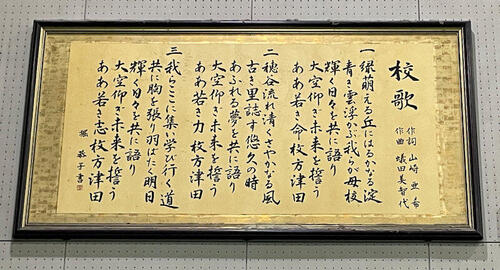 校歌
作詞 山崎亜希
作曲 蟻田美智代
一 緑萌える丘にはるかなる淀
青き雲浮かぶ我らが母校
輝く日々を共に語り
大空仰ぎ未来を誓う
ああ若き命枚方津田
二 穂谷流れ清くさやかなる風
古き里誌す悠久の時
あふれる夢を共に語り
大空仰ぎ未来を誓う
ああ若き力枚方津田
三 我らここに集い学び行く道
共に胸を張り羽ばたく明日
輝く日々を共に語り
大空仰ぎ未来を誓う
ああ若き志枚方津田
恭子書